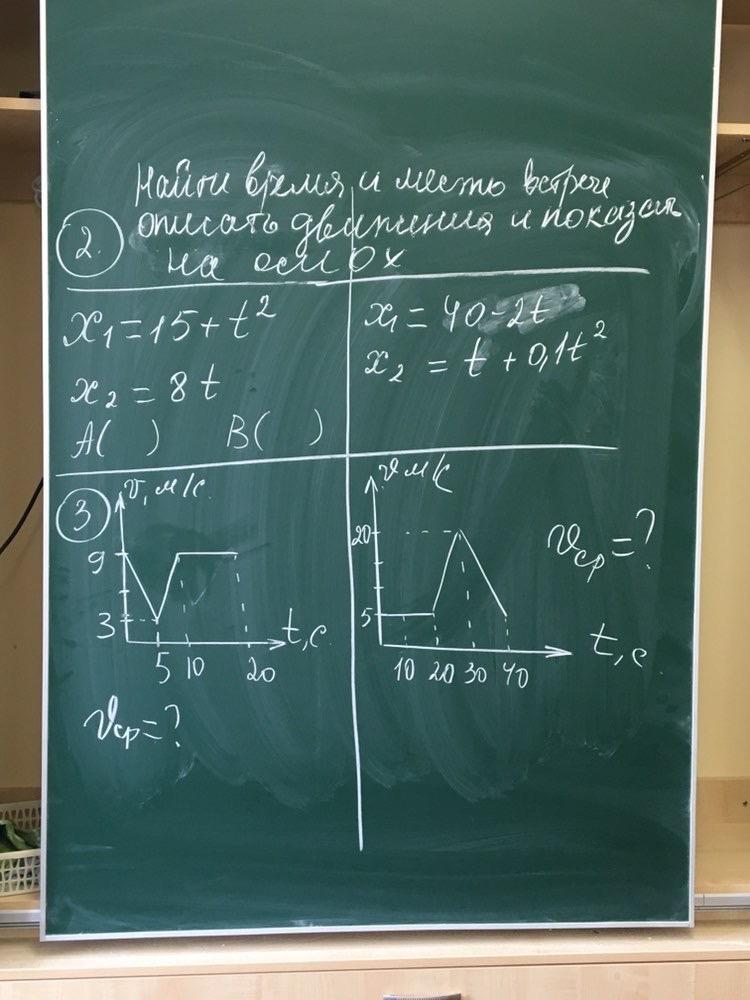 Найти время и место встречи
описать движения и показать
2. на оси OX
x₁ = 15 + t²
x₂ = 8t
A( ) B( )
x₁ = 40 - 2t
x₂ = t + 0,1t²
3
v, м/с
9
3
5 10 20
t, с
vср = ?
v м/с
20
5
10 20 30 40
t, с
vср = ?